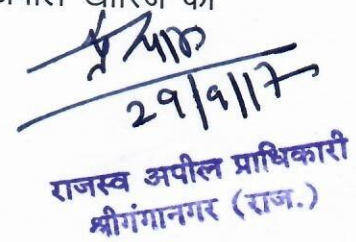 खारिज की
29/9/17
राजस्व अपील प्राधिकारी
श्रीगंगानगर (राज.)